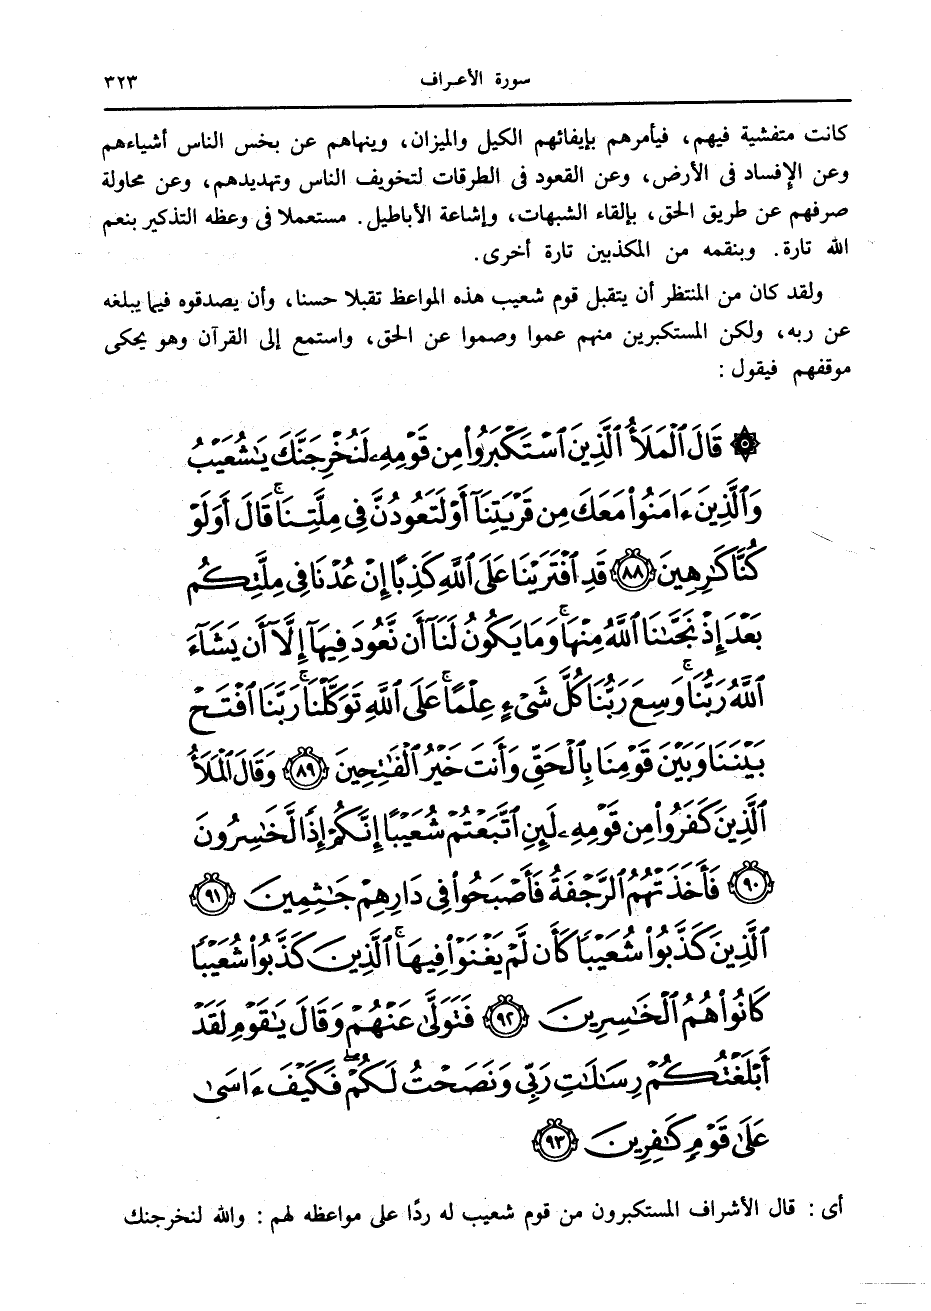 سورة الأعراف ٣٢٣
كانت متفشية فيهم، فيأمرهم بإيفائهم الكيل والميزان، وينهاهم عن بخس الناس أشياءهم
وعن الإفساد فى الأرض، وعن القعود فى الطرقات لتخويف الناس وتهديدهم، وعن محاولة
صرفهم عن طريق الحق، بإلقاء الشبهات، وإشاعة الأباطيل. مستعملا فى وعظه التذكير بنعم
الله تارة. وبنقمه من المكذبين تارة أخرى.
ولقد كان من المنتظر أن يتقبل قوم شعيب هذه المواعظ تقبلا حسنا، وأن يصدقوه فيما يبلغه
عن ربه، ولكن المستكبرين منهم عموا وصموا عن الحق، واستمع إلى القرآن وهو يحكى
موقفهم فيقول :
۞ قَالَ ٱلْمَلَأُ ٱلَّذِينَ ٱسْتَكْبَرُوا۟ مِن قَوْمِهِۦ لَنُخْرِجَنَّكَ يَـٰشُعَيْبُ
وَٱلَّذِينَ ءَامَنُوا۟ مَعَكَ مِن قَرْيَتِنَآ أَوْ لَتَعُودُنَّ فِى مِلَّتِنَا ۚ قَالَ أَوَلَوْ
كُنَّا كَـٰرِهِينَ ٨٨ قَدِ ٱفْتَرَيْنَا عَلَى ٱللَّهِ كَذِبًا إِنْ عُدْنَا فِى مِلَّتِكُم
بَعْدَ إِذْ نَجَّىٰنَا ٱللَّهُ مِنْهَا ۚ وَمَا يَكُونُ لَنَآ أَن نَّعُودَ فِيهَآ إِلَّآ أَن يَشَآءَ
ٱللَّهُ رَبُّنَا ۚ وَسِعَ رَبُّنَا كُلَّ شَىْءٍ عِلْمًا ۚ عَلَى ٱللَّهِ تَوَكَّلْنَا ۚ رَبَّنَا ٱفْتَحْ
بَيْنَنَا وَبَيْنَ قَوْمِنَا بِٱلْحَقِّ وَأَنتَ خَيْرُ ٱلْفَـٰتِحِينَ ٨٩ وَقَالَ ٱلْمَلَأُ
ٱلَّذِينَ كَفَرُوا۟ مِن قَوْمِهِۦ لَئِنِ ٱتَّبَعْتُمْ شُعَيْبًا إِنَّكُمْ إِذًا لَّخَـٰسِرُونَ
٩٠ فَأَخَذَتْهُمُ ٱلرَّجْفَةُ فَأَصْبَحُوا۟ فِى دَارِهِمْ جَـٰثِمِينَ ٩١
ٱلَّذِينَ كَذَّبُوا۟ شُعَيْبًا كَأَن لَّمْ يَغْنَوْا۟ فِيهَا ۚ ٱلَّذِينَ كَذَّبُوا۟ شُعَيْبًا
كَانُوا۟ هُمُ ٱلْخَـٰسِرِينَ ٩٢ فَتَوَلَّىٰ عَنْهُمْ وَقَالَ يَـٰقَوْمِ لَقَدْ
أَبْلَغْتُكُمْ رِسَـٰلَـٰتِ رَبِّى وَنَصَحْتُ لَكُمْ ۖ فَكَيْفَ ءَاسَىٰ
عَلَىٰ قَوْمٍ كَـٰفِرِينَ ٩٣
أى : قال الأشراف المستكبرون من قوم شعيب له ردًا على مواعظه لهم : والله لنخرجنك